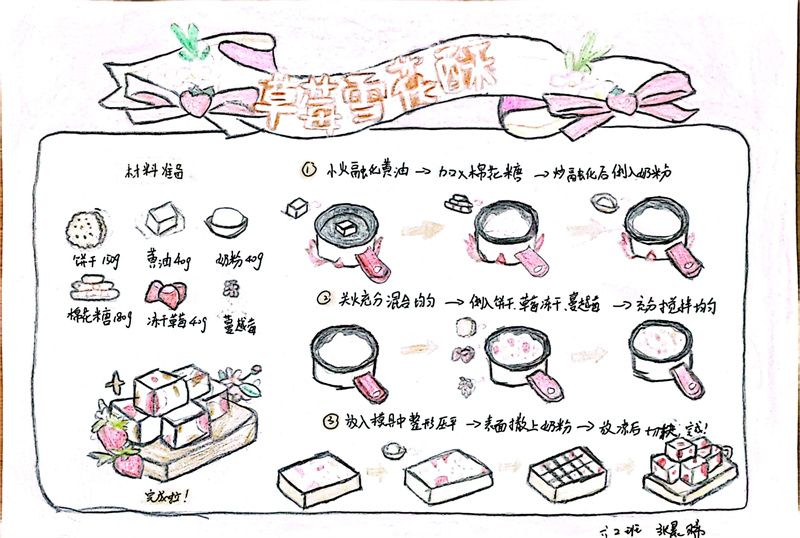 草莓雪花酥
材料准备
饼干150g
黄油40g
奶粉40g
棉花糖180g
冻干草莓40g
蔓越莓
完成啦！
① 小火融化黄油→加入棉花糖→炒融化后倒入奶粉
② 关火充分混合均匀→倒入饼干、草莓冻干、蔓越莓→充分搅拌均匀
③ 放入模具中整形压平→表面撒上奶粉→放凉后切块，完成！
六2班